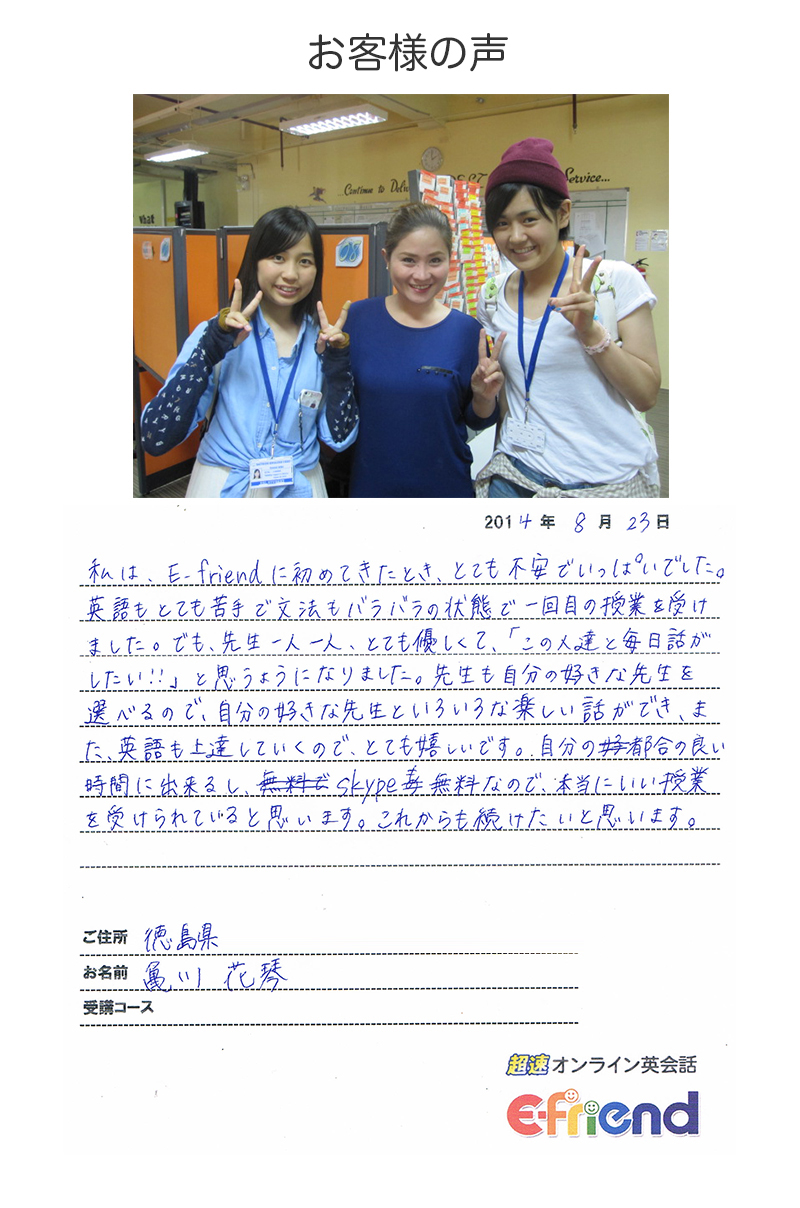 お客様の声
Continue to
Service...
2014年 8月 23日
私は、E-friendに初めてきたとき、とても不安でいっぱいでした。
英語もとても苦手で文法もバラバラの状態で一回目の授業を受け
ました。でも、先生一人一人、とても優しくて、「この人達と毎日話が
したい!!」と思うようになりました。先生も自分の好きな先生を
選べるので、自分の好きな先生といろいろな楽しい話ができ、ま
た、英語も上達していくので、とても嬉しいです。自分の都合の良い
時間に出来るし、無料で skype 無料なので、本当にいい授業
を受けられていると思います。これからも続けたいと思います。
ご住所 徳島県
お名前 亀川 花琴
受講コース
超速オンライン英会話
E-friend